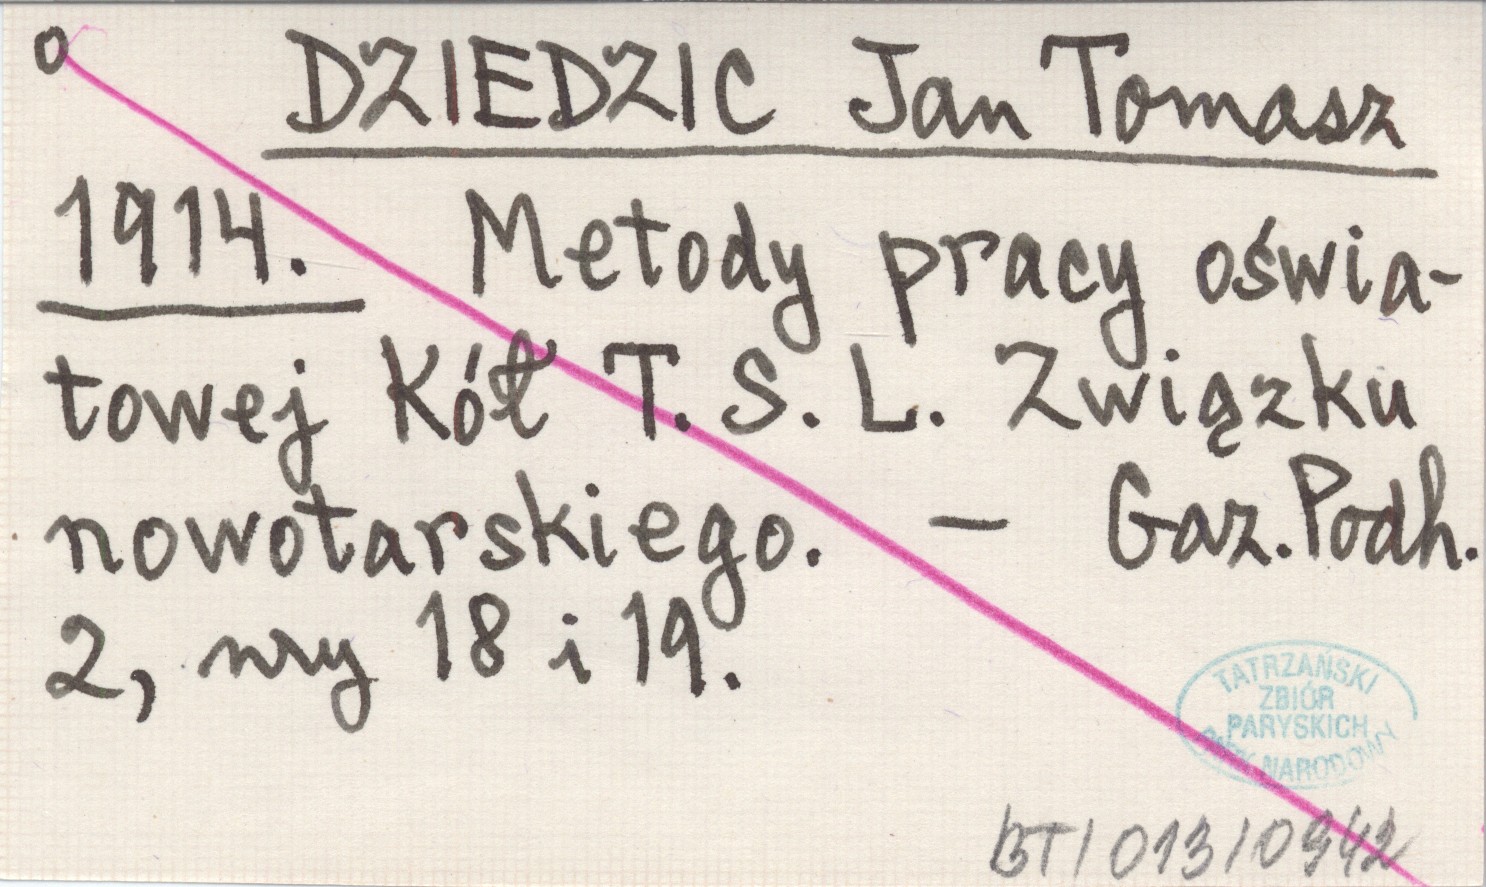 o DZIEDZIC Jan Tomasz
1914. Metody pracy oświa-
towej Kół T. S. L. Związku
nowotarskiego. — Gaz. Podh.
2, nry 18 i 19.
TATRZAŃSKI
ZBIÓR
PARYSKICH
PARK NARODOWY
BT/013/0942